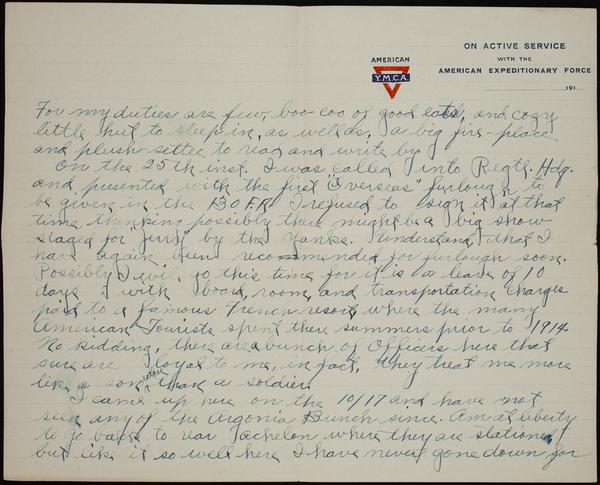 ON ACTIVE SERVICE
WITH THE
AMERICAN EXPEDITIONARY FORCE
AMERICAN
Y.M.C.A.
191
For my duties are few, boo-coo of good eats, and cozy
little hut to sleep in, as well as, a big fire-place
and plush-settee to read and write by.
On the 25th inst. I was called into Regtl. Hdq.
and presented with the first "Overseas" furlough to
be given in the 13 O.F.R. I refused to sign it at that
time, thinking possibly there might be a big show-
staged for "Jerry" by the Yanks. Understand, that I
have again been recommended for furlough soon.
Possibly I wil, go this time for it is a leave of 10
days with board, room, and transportation charges
paid to a famous French resort where the many
American Tourists spent there summers prior to 1914.
No kidding, there are a bunch of Officers here that
sure are loyal to me, in fact, they treat me more
like a son rather than a soldier.
I came up here on the 10/17 and have not
seen any of the Argonia Bunch since. Am at liberty
to go back to rear echelon where they are stationed
but like it so well here I have never gone down for